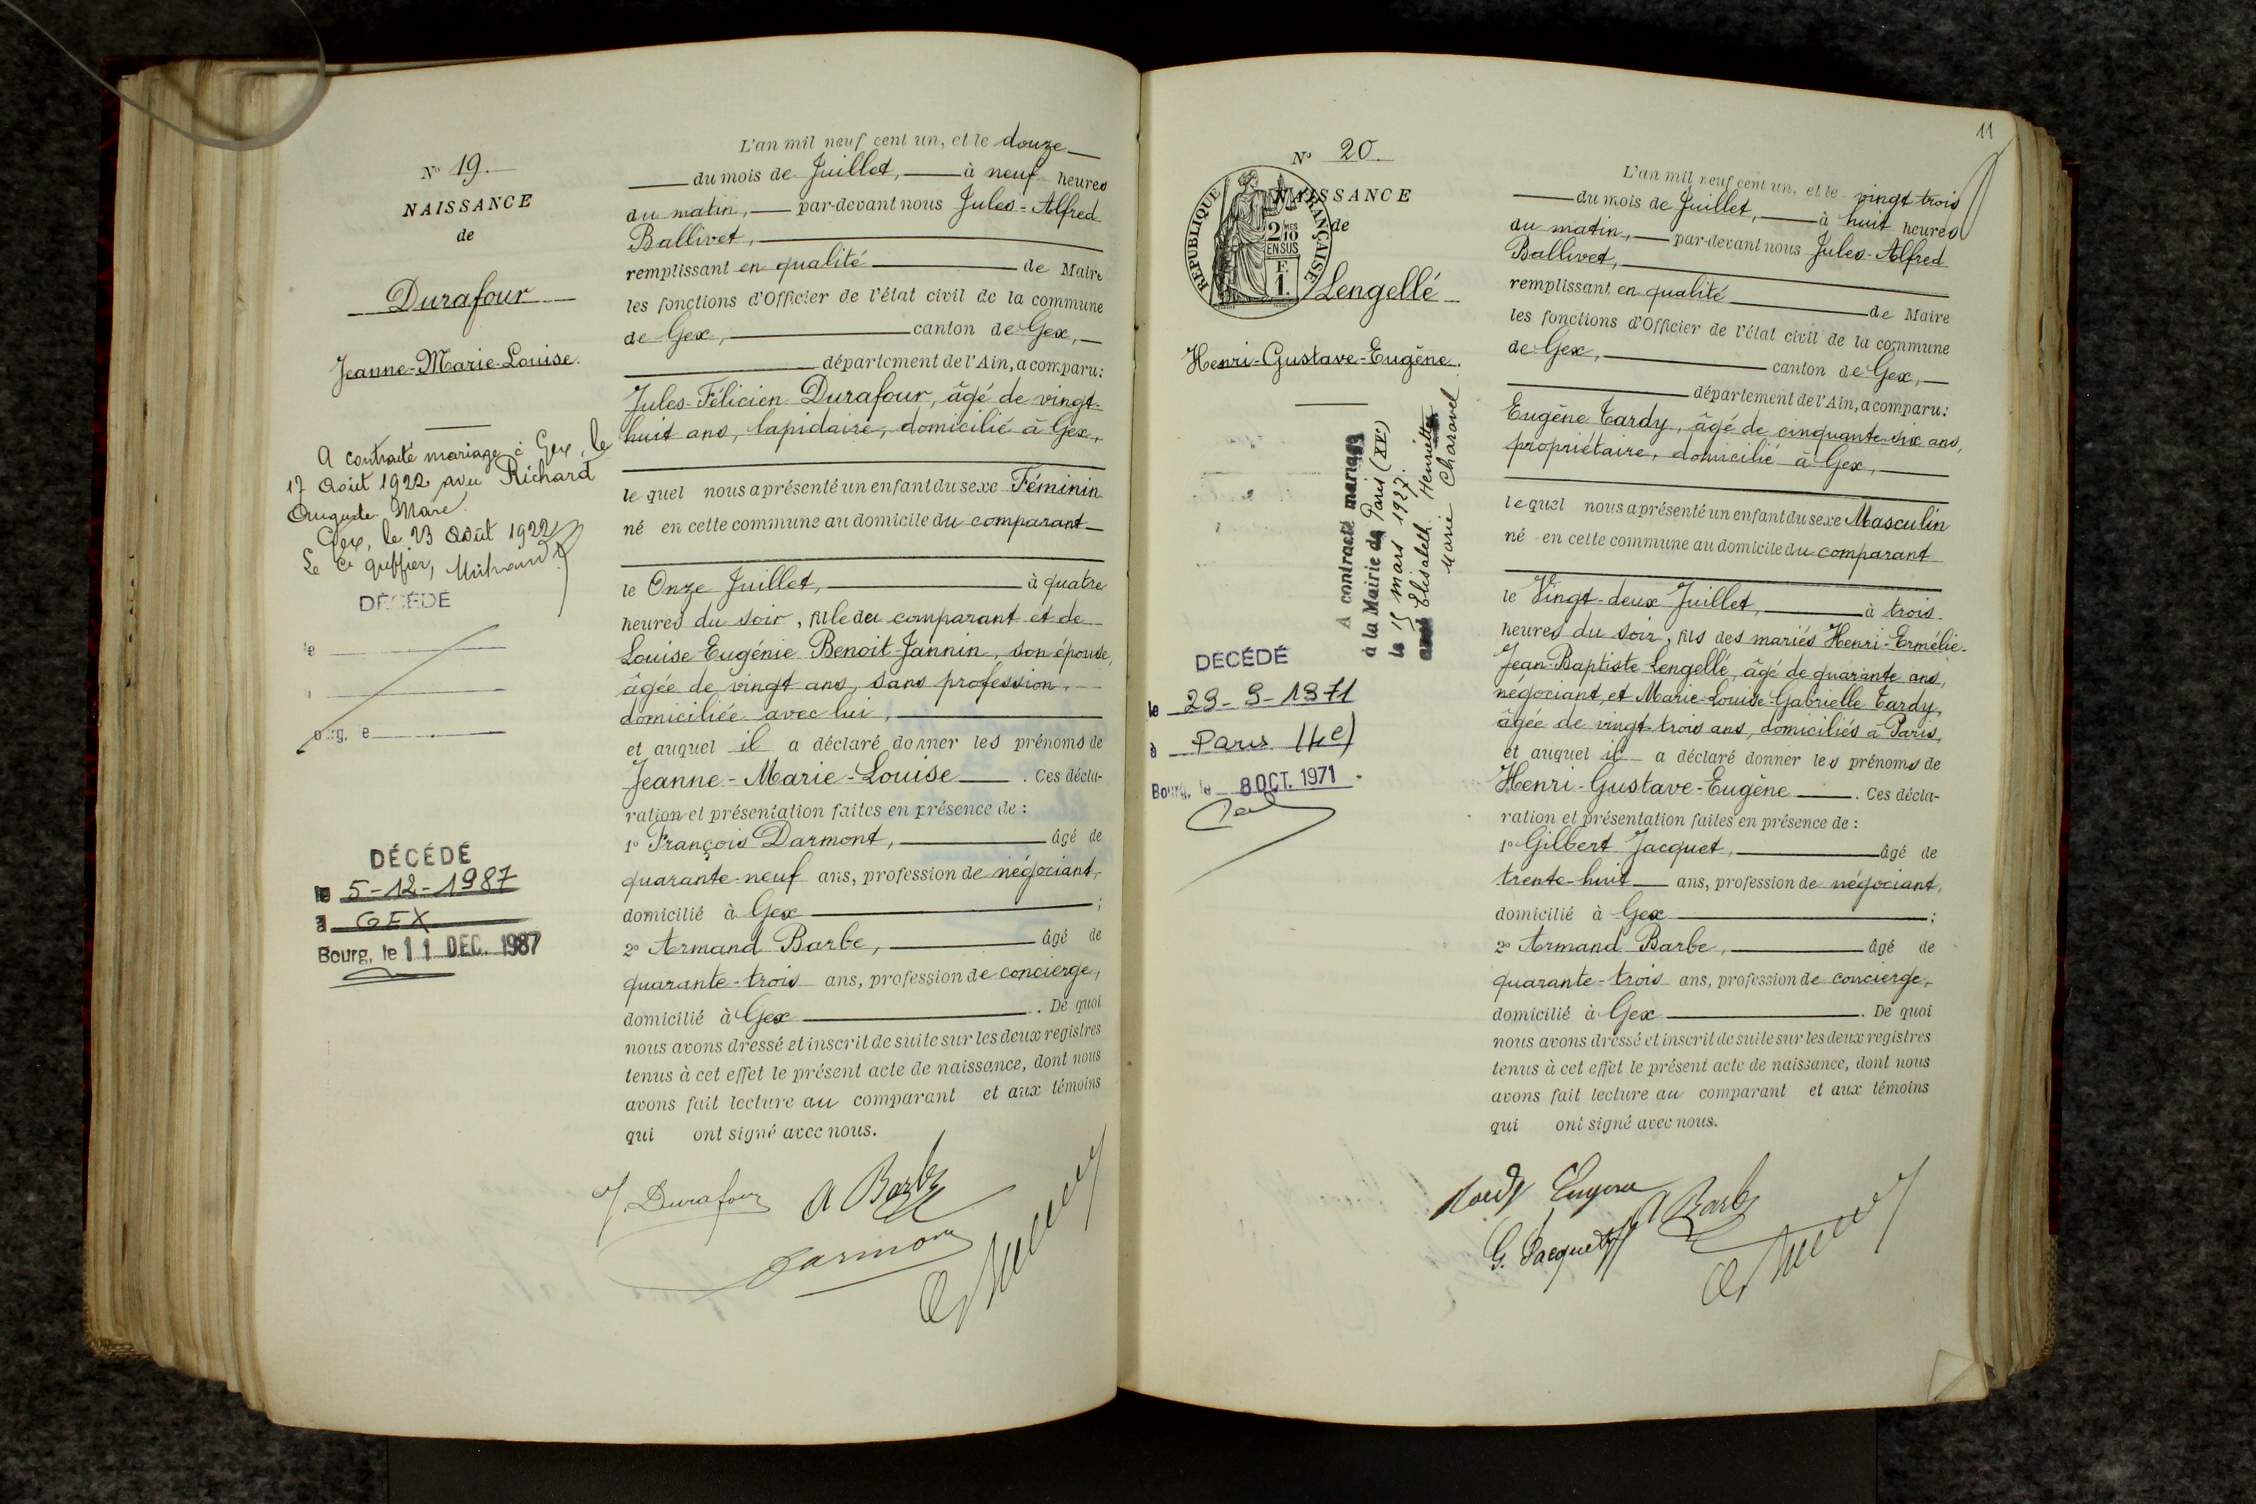 N° 19.
NAISSANCE
de
Durafour
Jeanne-Marie-Louise.
A contracté mariage à Gex, le
17 Août 1922 avec Richard
Auguste Marc.
Gex, le 23 Août 1922
Le Cis greffier,
DÉCÉDÉ
le
DÉCÉDÉ
le 5-12-1987
à GEX
Bourg, le 11 DEC. 1987
L'an mil neuf cent un, et le douze
du mois de Juillet, à neuf heures
du matin, par-devant nous Jules-Alfred
Ballivet,
remplissant en qualité de Maire
les fonctions d'Officier de l'état civil de la commune
de Gex, canton de Gex,
département de l'Ain, a comparu:
Jules-Félicien Durafour, âgé de vingt-
huit ans, lapidaire, domicilié à Gex,
le quel nous a présenté un enfant du sexe Féminin
né en cette commune au domicile du comparant
le Onze Juillet, à quatre
heures du soir, fille du comparant et de
Louise Eugénie Benoit-Jannin, son épouse,
âgée de vingt ans, sans profession,
domiciliée avec lui,
et auquel il a déclaré donner les prénoms de
Jeanne-Marie-Louise. Ces décla-
ration et présentation faites en présence de :
1° François Darmont, âgé de
quarante-neuf ans, profession de négociant,
domicilié à Gex ;
2° Armand Barbe, âgé de
quarante-trois ans, profession de concierge,
domicilié à Gex. De quoi
nous avons dressé et inscrit de suite sur les deux registres
tenus à cet effet le présent acte de naissance, dont nous
avons fait lecture au comparant et aux témoins
qui ont signé avec nous.
J. Durafour A Barbe
Darmont
11
N° 20.
NAISSANCE
de
RÉPUBLIQUE FRANÇAISE
2/10 MES
EN SUS
F.
1.
Lengellé
Henri-Gustave-Eugène.
A contracté mariage
à la Mairie de Paris (XVe)
le 15 mars 1927.
avec Elisabeth Henriette
Marie Charavel
DÉCÉDÉ
le 29-9-1971
à Paris (14e)
Bourg, le 8 OCT. 1971
L'an mil neuf cent un, et le vingt trois
du mois de Juillet, à huit heures
du matin, par-devant nous Jules-Alfred
Ballivet,
remplissant en qualité de Maire
les fonctions d'Officier de l'état civil de la commune
de Gex, canton de Gex,
département de l'Ain, a comparu:
Eugène Tardy, âgé de cinquante-six ans,
propriétaire, domicilié à Gex,
le quel nous a présenté un enfant du sexe Masculin
né en cette commune au domicile du comparant
le Vingt-deux Juillet, à trois
heures du soir, fils des mariés Henri-Ermélie-
Jean-Baptiste Lengellé, âgé de quarante ans,
négociant, et Marie-Louise-Gabrielle Tardy,
âgée de vingt-trois ans, domiciliés à Paris,
et auquel il a déclaré donner les prénoms de
Henri-Gustave-Eugène. Ces décla-
ration et présentation faites en présence de :
1° Gilbert Jacquet, âgé de
trente-huit ans, profession de négociant,
domicilié à Gex ;
2° Armand Barbe, âgé de
quarante-trois ans, profession de concierge,
domicilié à Gex. De quoi
nous avons dressé et inscrit de suite sur les deux registres
tenus à cet effet le présent acte de naissance, dont nous
avons fait lecture au comparant et aux témoins
qui ont signé avec nous.
Tardy Eugène A Barbe
G. Jacquet